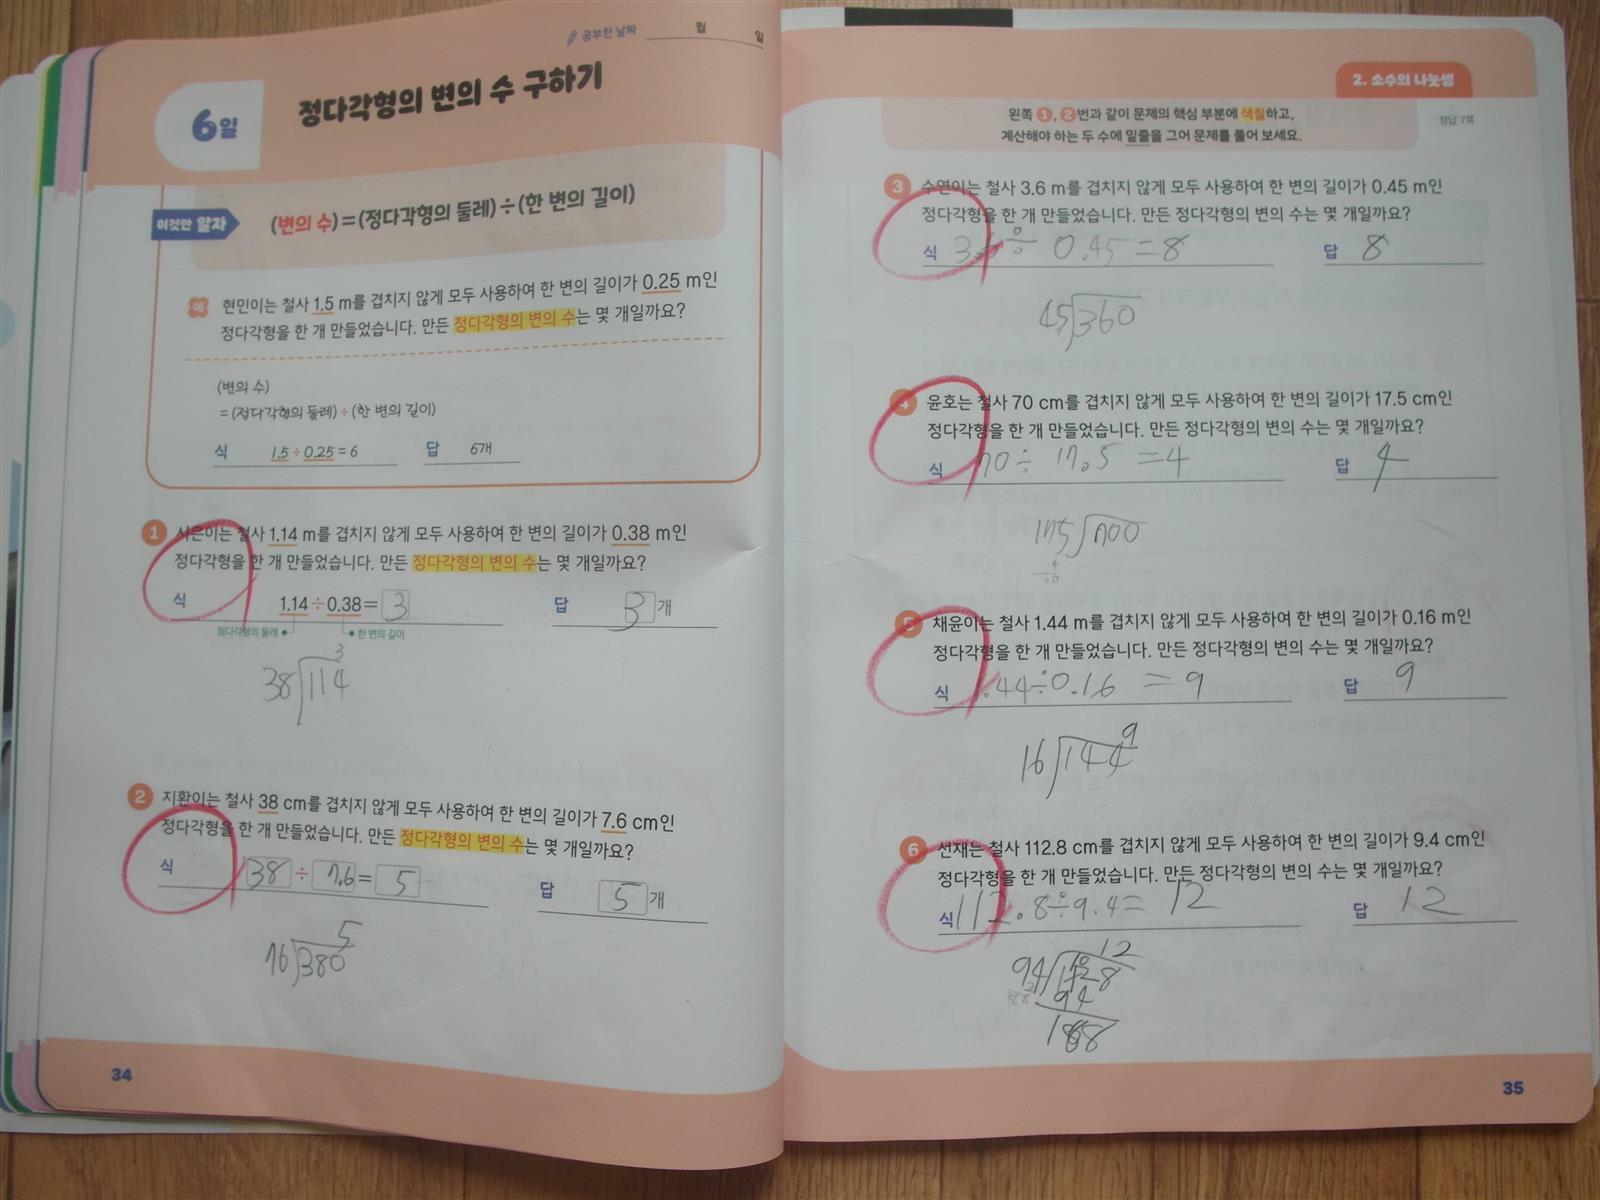 공부한 날짜 월 일
6일
정다각형의 변의 수 구하기
이것만 알자
(변의 수) = (정다각형의 둘레) ÷ (한 변의 길이)
예 현민이는 철사 1.5 m를 겹치지 않게 모두 사용하여 한 변의 길이가 0.25 m인
정다각형을 한 개 만들었습니다. 만든 정다각형의 변의 수는 몇 개일까요?
(변의 수)
= (정다각형의 둘레) ÷ (한 변의 길이)
식 1.5 ÷ 0.25 = 6 답 6개
1 시은이는 철사 1.14 m를 겹치지 않게 모두 사용하여 한 변의 길이가 0.38 m인
정다각형을 한 개 만들었습니다. 만든 정다각형의 변의 수는 몇 개일까요?
식 1.14 ÷ 0.38 = 3 답 3 개
정다각형의 둘레 한 변의 길이
3
38 114
2 지환이는 철사 38 cm를 겹치지 않게 모두 사용하여 한 변의 길이가 7.6 cm인
정다각형을 한 개 만들었습니다. 만든 정다각형의 변의 수는 몇 개일까요?
식 38 ÷ 7.6 = 5 답 5 개
5
76 380
34
2. 소수의 나눗셈
왼쪽 1, 2번과 같이 문제의 핵심 부분에 색칠하고,
계산해야 하는 두 수에 밑줄을 그어 문제를 풀어 보세요.
정답 7쪽
3 수연이는 철사 3.6 m를 겹치지 않게 모두 사용하여 한 변의 길이가 0.45 m인
정다각형을 한 개 만들었습니다. 만든 정다각형의 변의 수는 몇 개일까요?
식 3.6 ÷ 0.45 = 8 답 8
45 360
4 윤호는 철사 70 cm를 겹치지 않게 모두 사용하여 한 변의 길이가 17.5 cm인
정다각형을 한 개 만들었습니다. 만든 정다각형의 변의 수는 몇 개일까요?
식 70 ÷ 17.5 = 4 답 4
175 700
5 채윤이는 철사 1.44 m를 겹치지 않게 모두 사용하여 한 변의 길이가 0.16 m인
정다각형을 한 개 만들었습니다. 만든 정다각형의 변의 수는 몇 개일까요?
식 1.44 ÷ 0.16 = 9 답 9
9
16 144
6 선재는 철사 112.8 cm를 겹치지 않게 모두 사용하여 한 변의 길이가 9.4 cm인
정다각형을 한 개 만들었습니다. 만든 정다각형의 변의 수는 몇 개일까요?
식 112.8 ÷ 9.4 = 12 답 12
12
94 1128
94
188
35